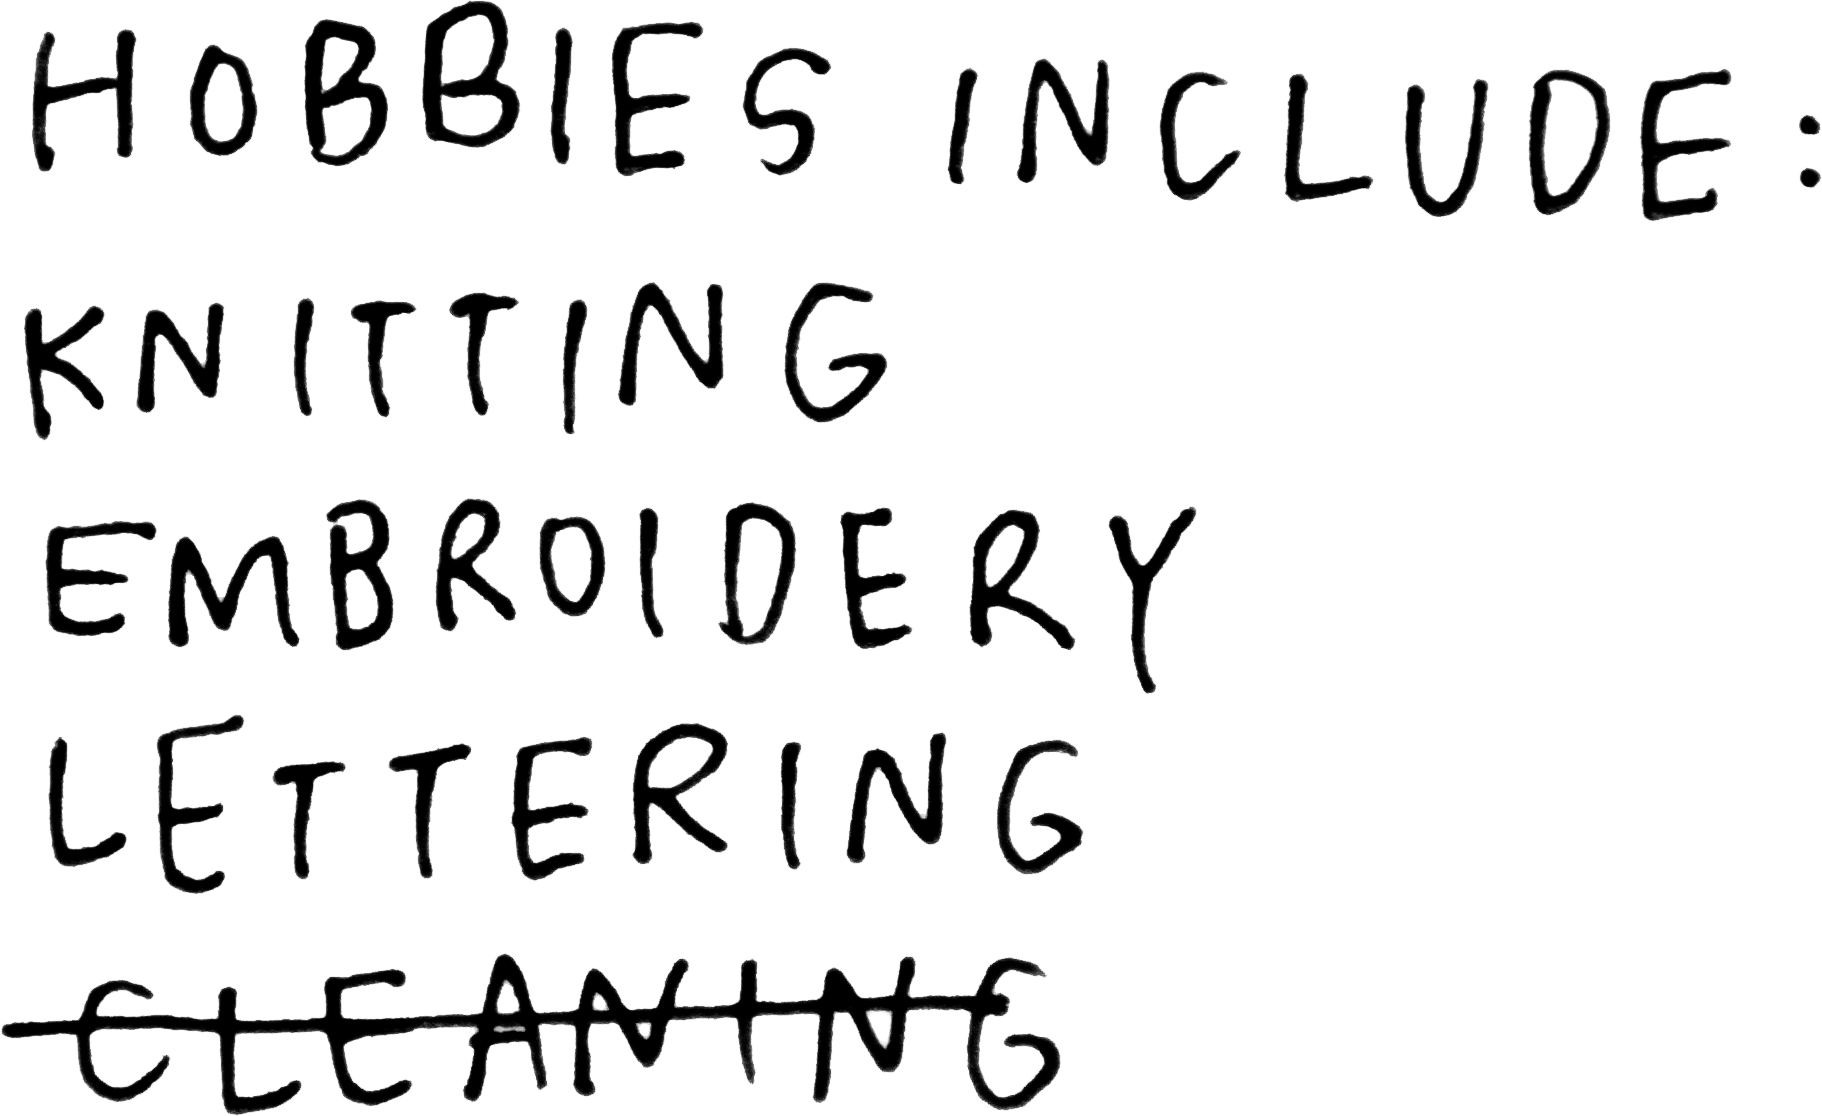 HOBBIES INCLUDE:
KNITTING
EMBROIDERY
LETTERING
CLEANING